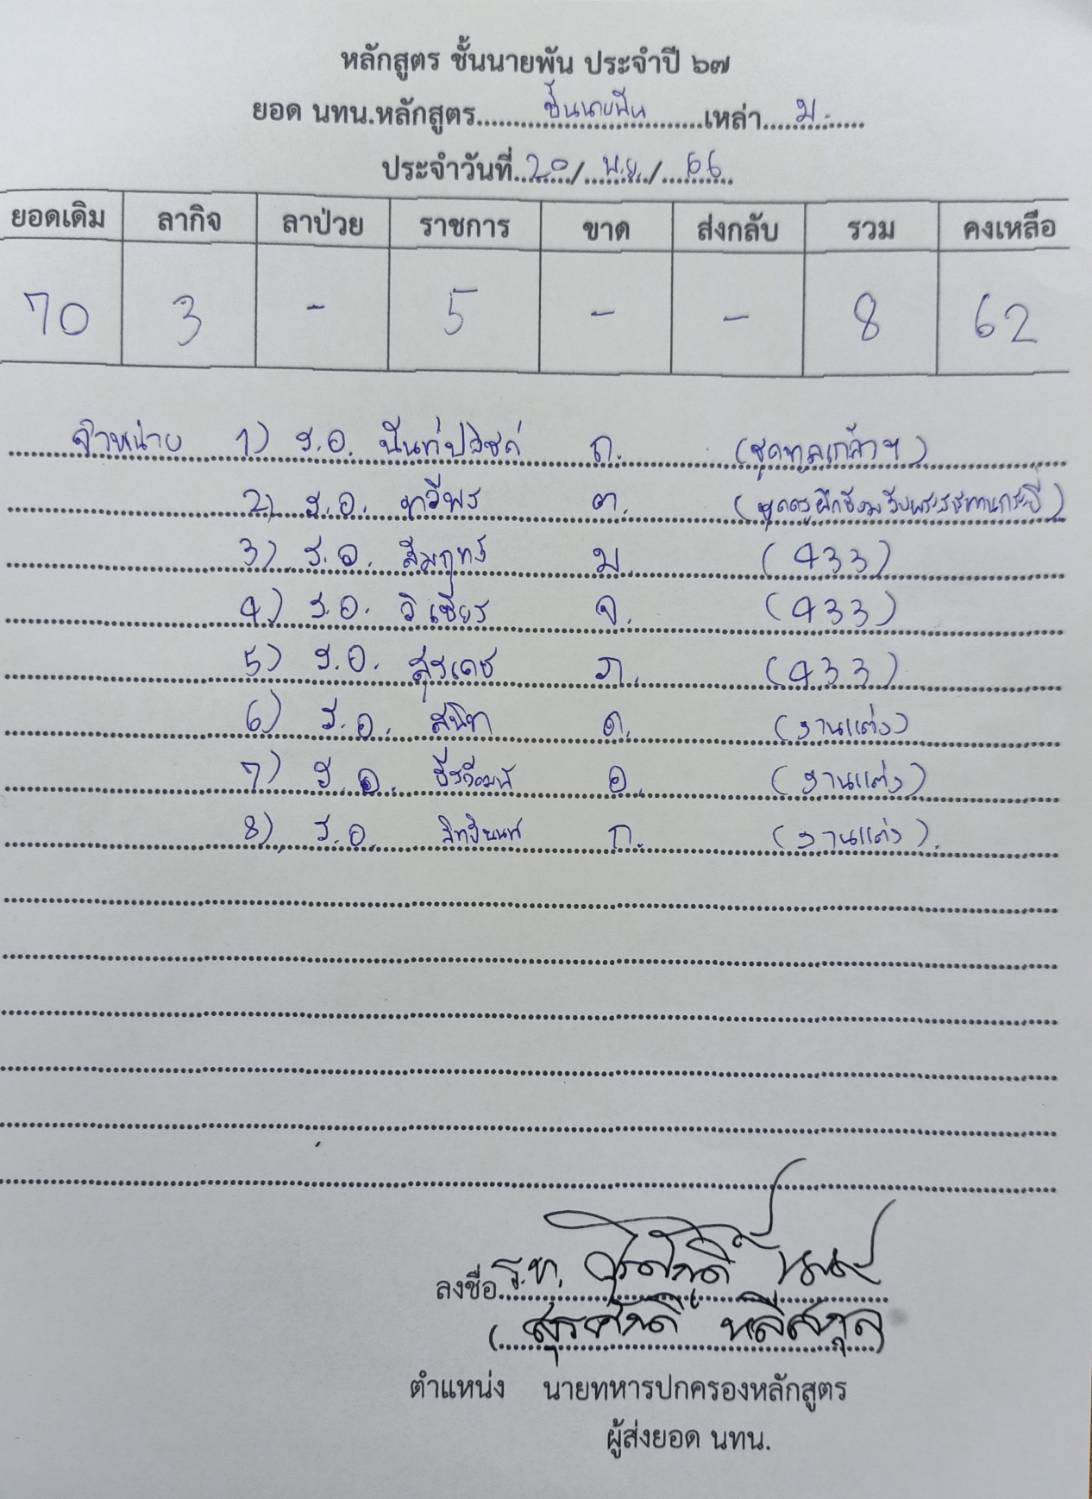 หลักสูตร ชั้นนายพัน ประจำปี ๖๗
ยอด นทน.หลักสูตร ชั้นนายพัน เหล่า ม.
ประจำวันที่ 20 / พ.ย. / 66
ยอดเดิม ลากิจ ลาป่วย ราชการ ขาด ส่งกลับ รวม คงเหลือ
70 3 - 5 - - 8 62
จำหน่าย 1) ร.อ. ถ. (ชุดทูลเกล้าฯ)
2) ร.อ. ทวีพร ต.
3) ร.อ. ม. (433)
4) ร.อ. วิเชียร จ. (433)
5) ร.อ. สุรเดช ภ. (433)
6) ร.อ. สนิท ด. (งานแต่ง)
7) ร.อ. อ. (งานแต่ง)
8) ร.อ. ก. (งานแต่ง).
ลงชื่อ ร.ท.
(สุรศักดิ์ หลีสกุล)
ตำแหน่ง นายทหารปกครองหลักสูตร
ผู้ส่งยอด นทน.